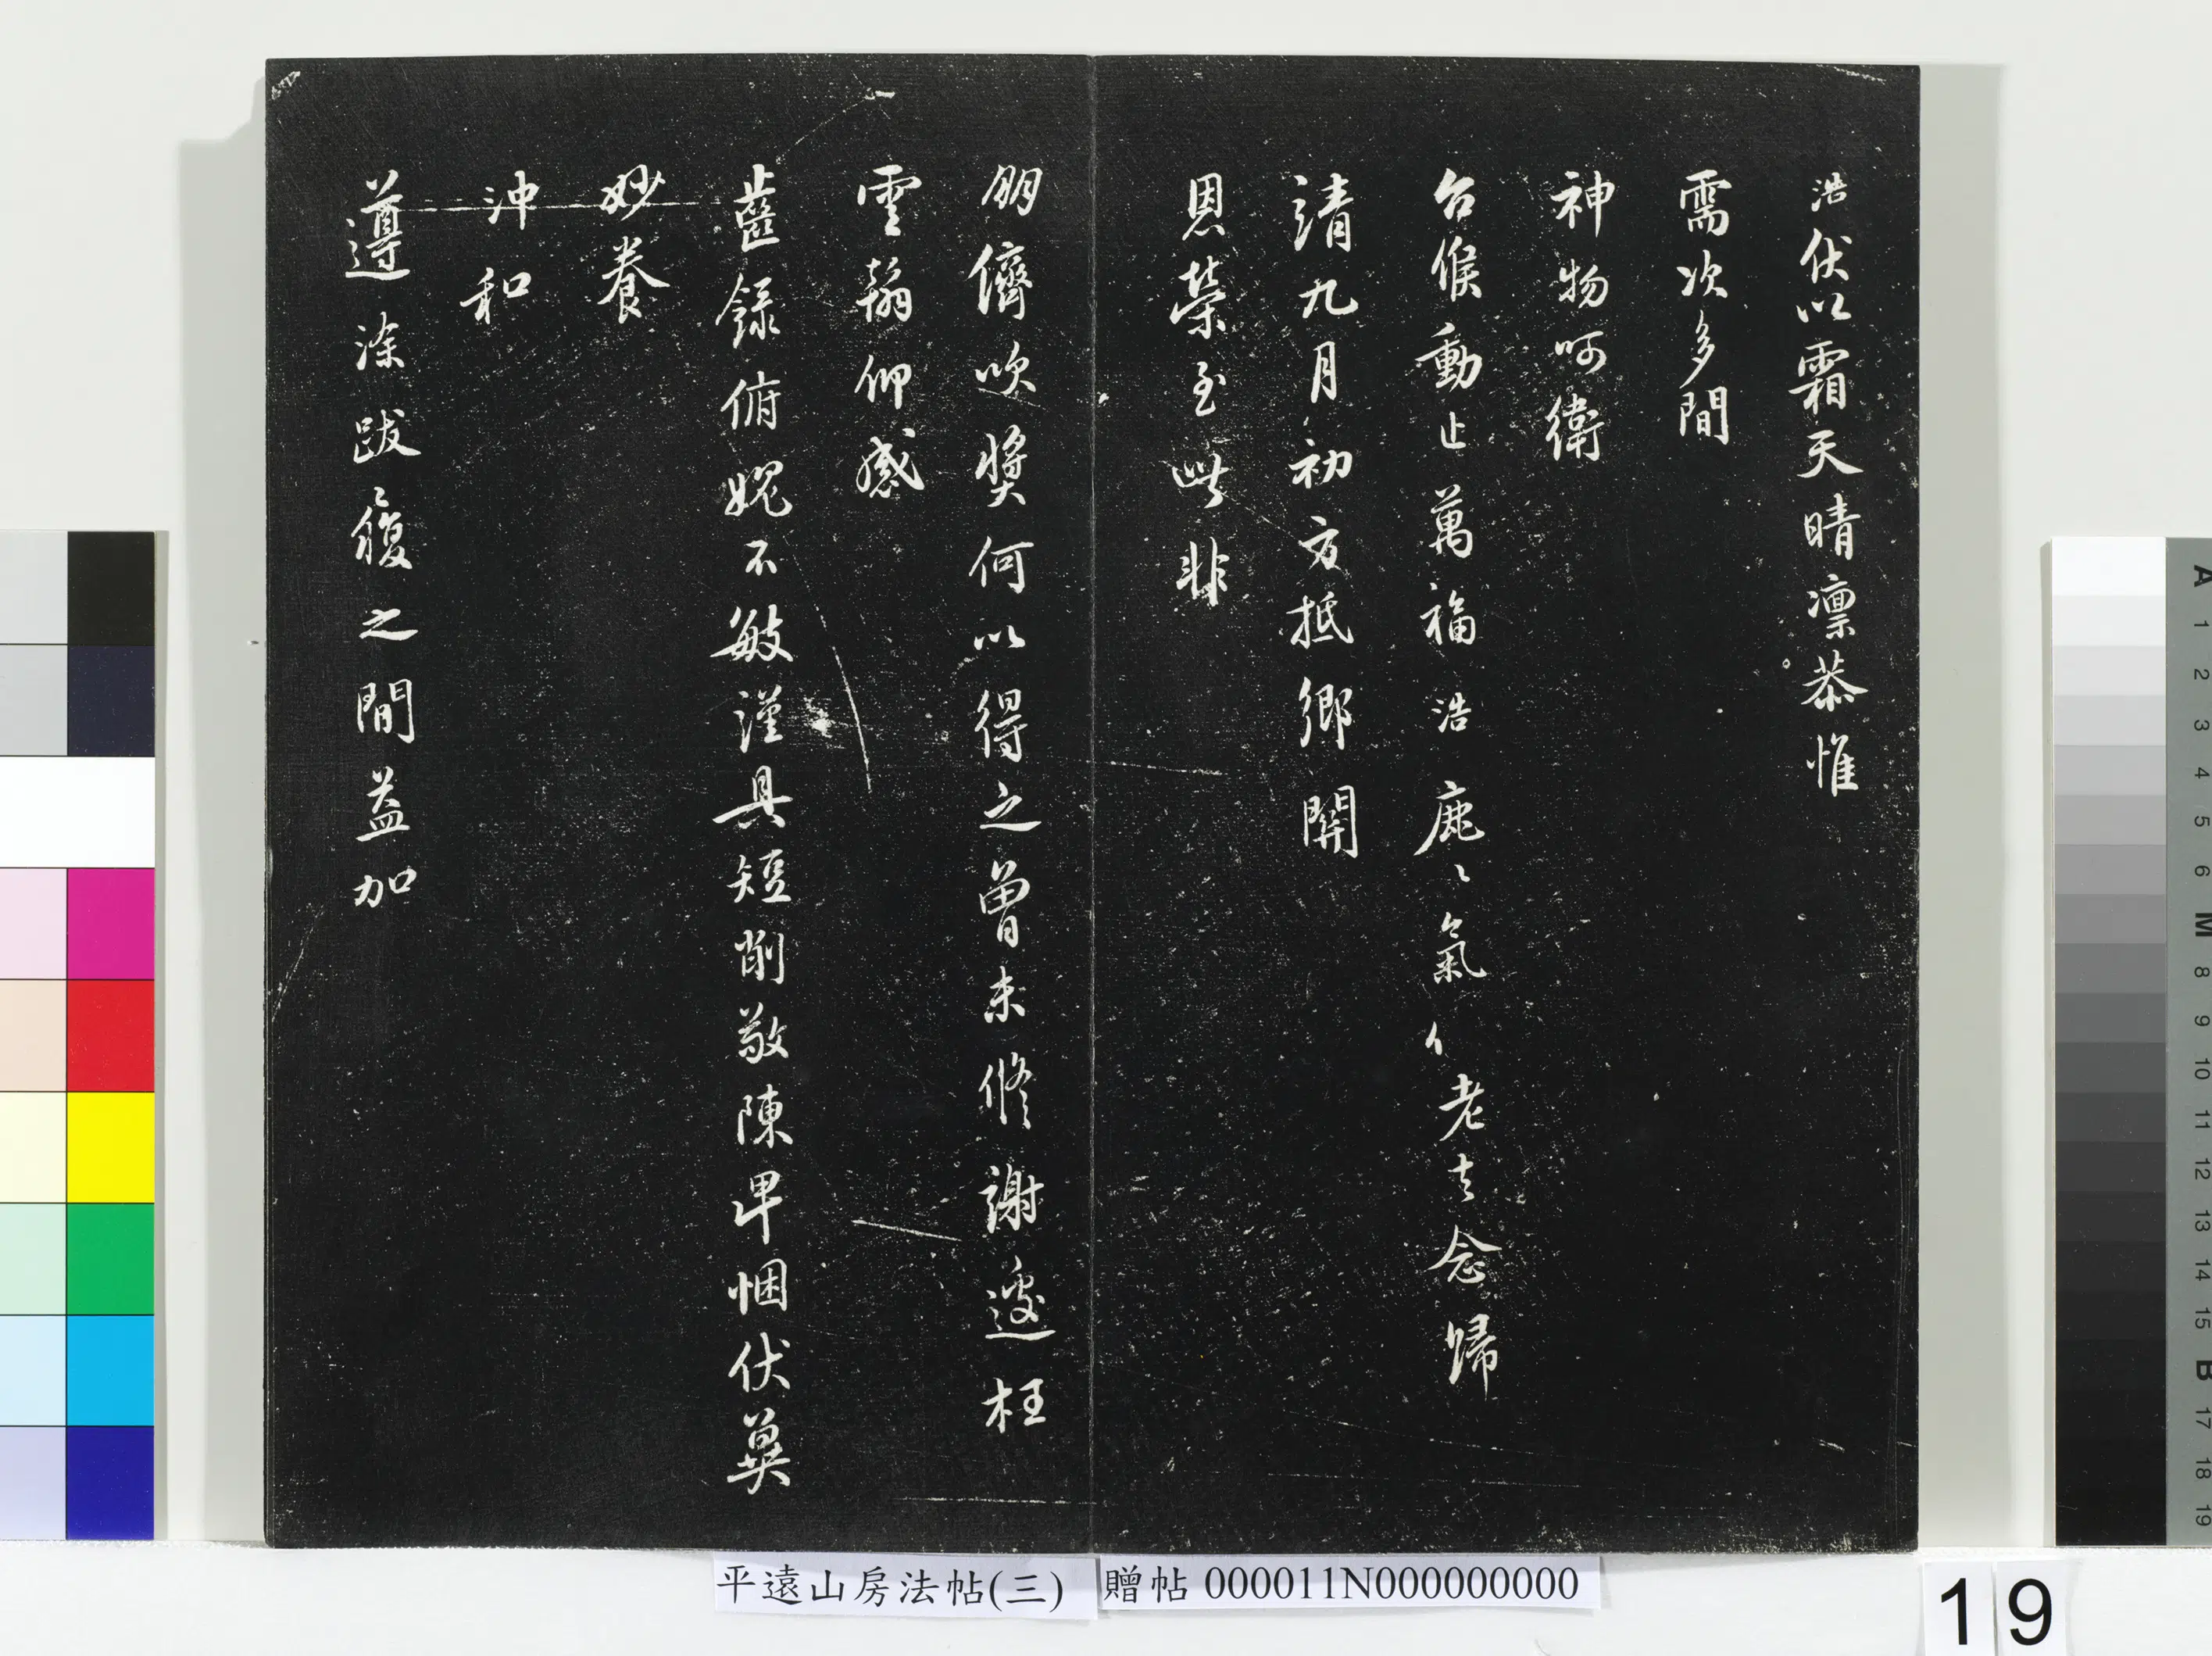 浩伏以霜天晴凛恭惟
需次多閒
神物呵衛
台候動止萬福浩鹿鹿氣 老去念歸
請九月初方抵鄉關
恩榮至此非
朋儕吹獎何以得之曾未脩謝遽枉
雲翰仰感
齒録俯媿不敏謹具短削敬陳卑悃伏冀
妙養
沖和
遵塗跋履之間益加
平遠山房法帖(三)
贈帖 000011N000000000
19
A
1
2
3
4
5
6
M
8
9
10
11
12
13
14
15
B
17
18
19